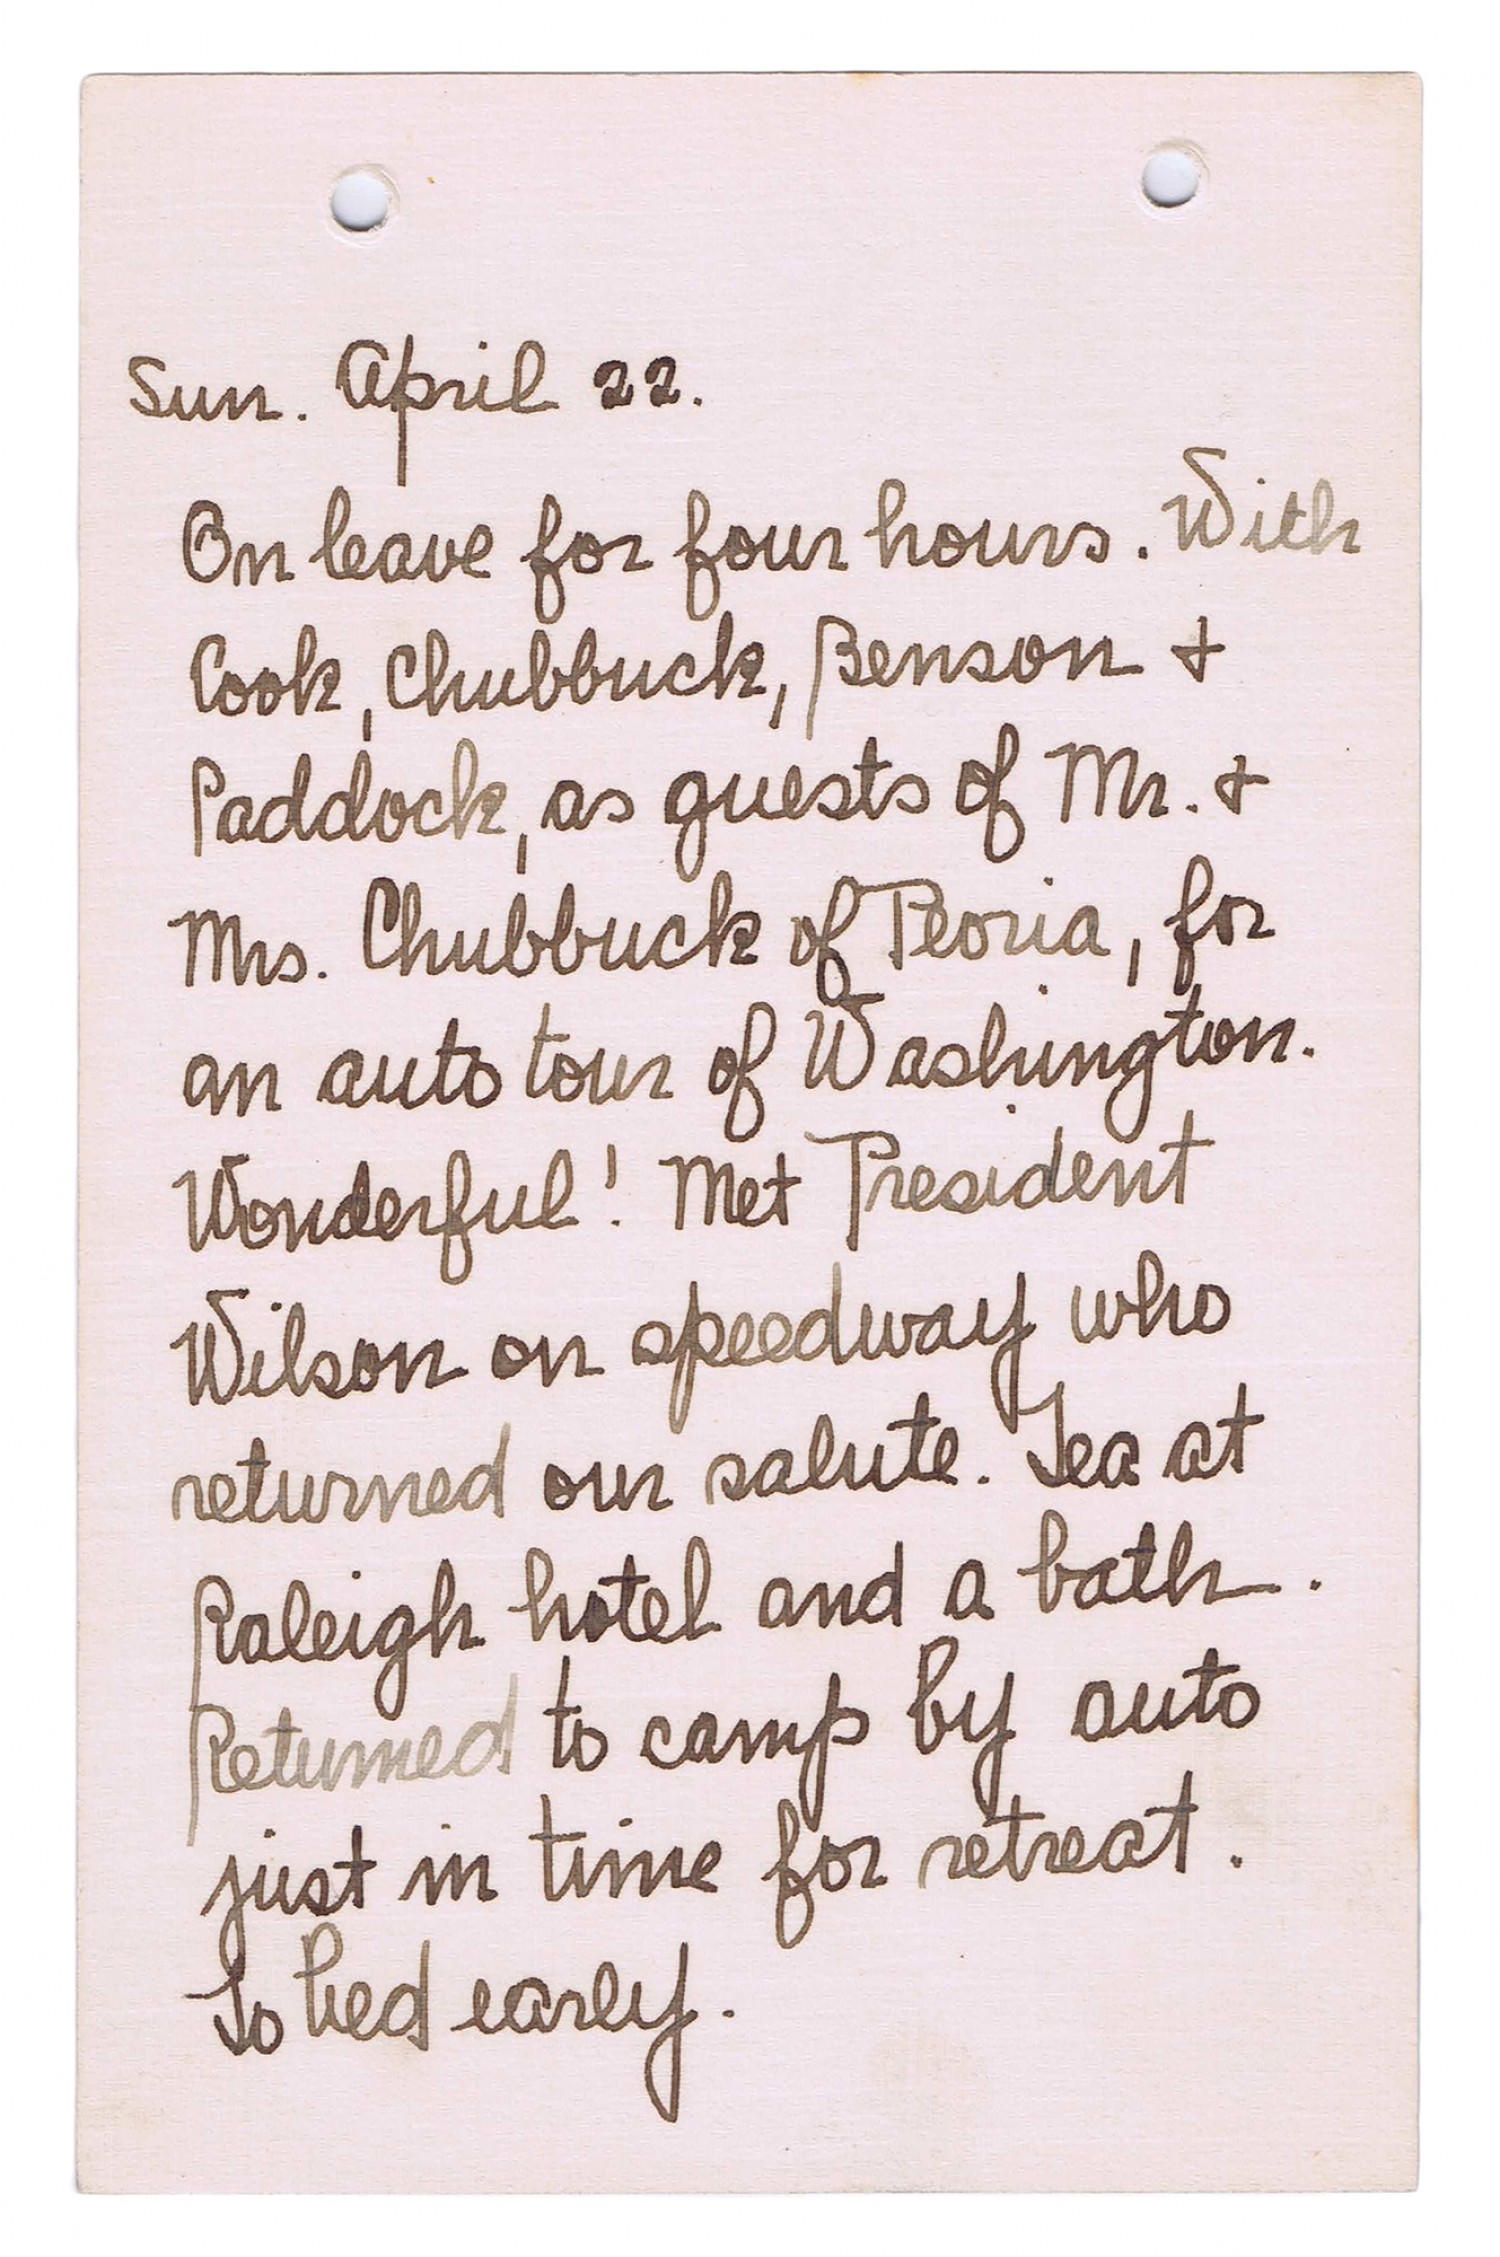 Sun. April 22.
On leave for four hours. With
Cook, Chubbuck, Benson &
Paddock, as guests of Mr. &
Mrs. Chubbuck of Peoria, for
an auto tour of Washington.
Wonderful! Met President
Wilson on speedway who
returned our salute. Tea at
Raleigh hotel and a bath.
Returned to camp by auto
just in time for retreat.
To bed early.